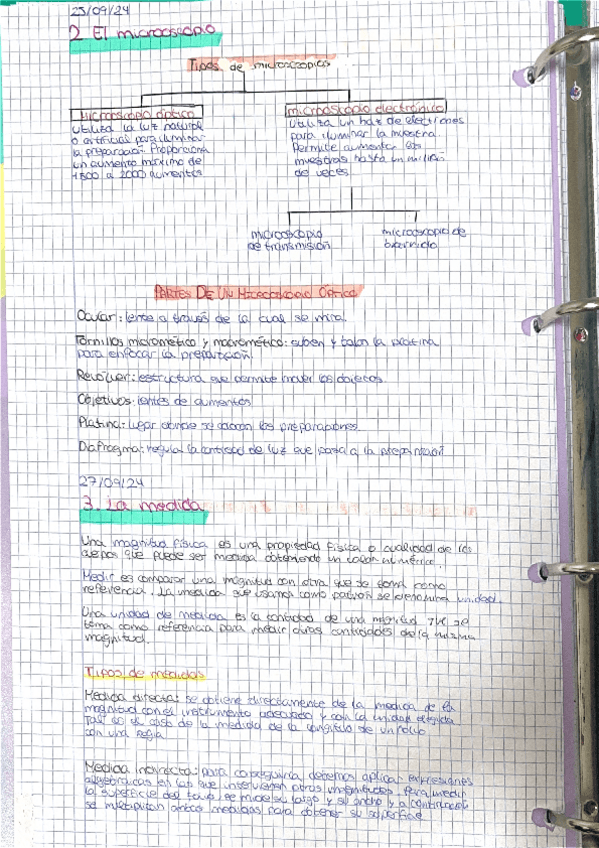 25/09/24
2 El microoscopio
Tipos de microscopios
Microscopio óptico
utiliza la luz natural
o artificial para iluminar
la preparación. Proporciona
un aumento máximo de
1500 a 2000 aumentos
microoscopio electrónico
utiliza un haz de electrones
para iluminar la muestra.
Permite aumentar las
muestras hasta un millón
de veces
microoscopio
de transmisión
microoscopio de
barrido
PARTES DE UN MICROOSCOPIO ÓPTICO
Ocular: lente a través de la cual se mira.
Tornillos micrométrico y macrométrico: suben y bajan la platina
para enfocar la preparación
Revólver: estructura que permite mover los objetivos
Objetivos: lentes de aumentos
Platina: lugar donde se colocan las preparaciones
Diafragma: regula la cantidad de luz que pasa a la preparación
27/09/24
3. La medida
Una magnitud física es una propiedad física o cualidad de los
cuerpos que puede ser medida obteniendo un valor numérico.
Medir es comparar una magnitud con otra que se toma como
referencia. La medida que usamos como patrón se denomina unidad.
Una unidad de medida es la cantidad de una magnitud que se
toma como referencia para medir otras cantidades de la misma
magnitud.
Tipos de medidas
Medida directa: se obtiene directamente de la medida de la
magnitud con el instrumento adecuado y con la unidad elegida
Tal es el caso de la medida de la longitud de un folio
con una regla
Medida indirecta: para conseguirla, debemos aplicar expresiones
algebraicas en las que intervienen otras magnitudes. Para medir
la superficie del folio, se mide su largo y su ancho y a continuación
se multiplican ambas medidas para obtener su superficie